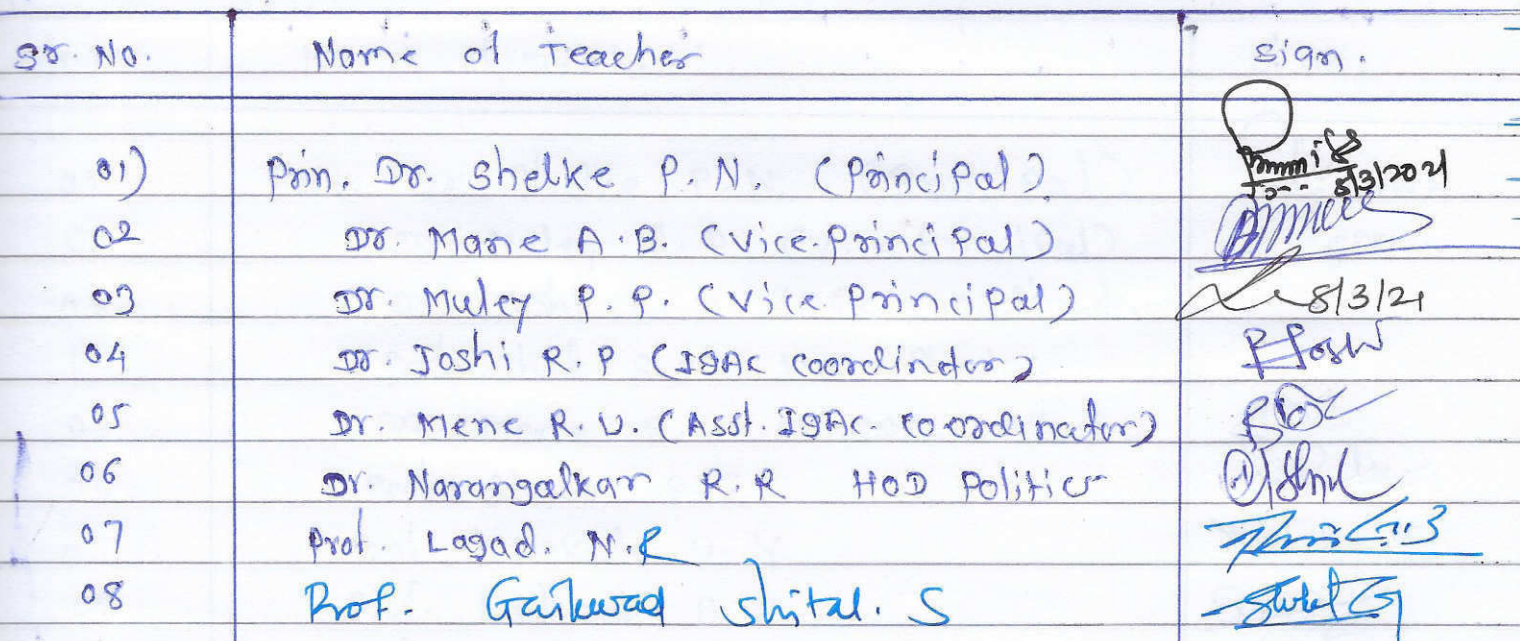 Sr. No. Name of Teacher Sign.
01) Prin. Dr. Shelke P. N. (Principal) 8/3/2021
02 Dr. Mane A. B. (Vice. Principal)
03 Dr. Muley P. P. (Vice Principal) 8/3/21
04 Dr. Joshi R. P (IQAC Coordinator)
05 Dr. Mene R. U. (Asst. IQAC. Coordinator)
06 Dr. Narangalkar R. R HOD Politics
07 Prof. Lagad. N. R
08 Prof. Gaikwad Shital. S